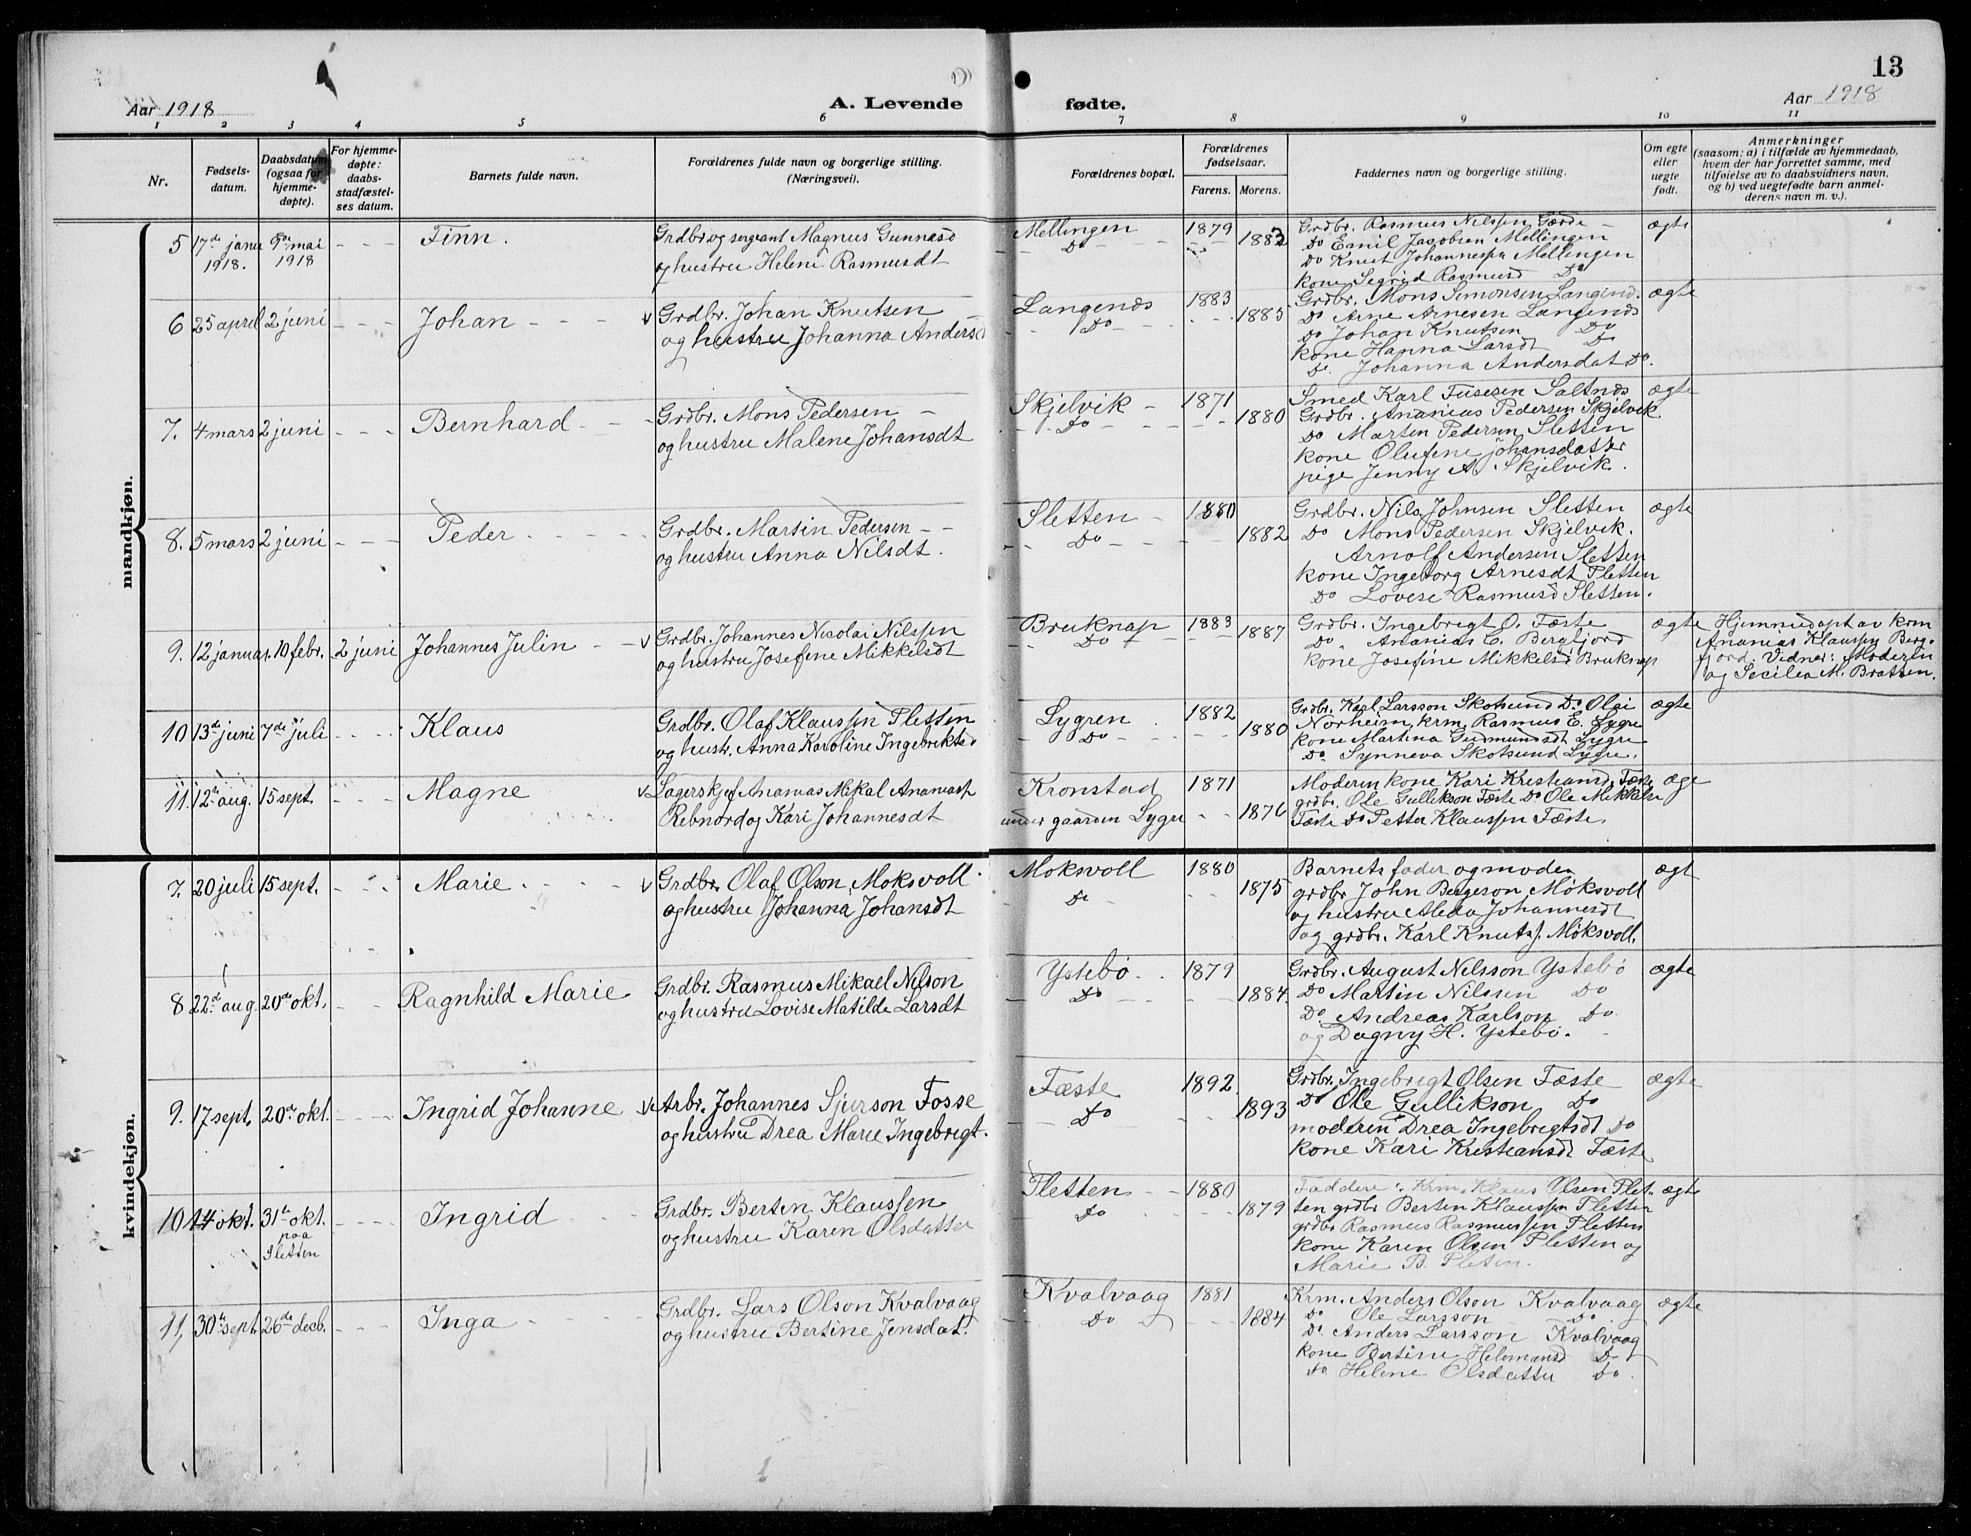 13
Aar 1918
A. Levende
fødte.
Aar 1918
1 2 3 4 5 6 7 8 9 10 11
Nr.
Fødsels-
datum.
Daabsdatum
(ogsaa for
hjemme-
døpte).
For hjemme-
døpte:
daabs-
stadfæstel-
ses datum.
Barnets fulde navn.
Forældrenes fulde navn og borgerlige stilling.
(Næringsvei).
Forældrenes bopæl.
Forældrenes
fødselsaar.
Farens. Morens.
Faddernes navn og borgerlige stilling.
Om egte
eller
uegte
født.
Anmerkninger
(saasom: a) i tilfælde av hjemmedaab,
hvem der har forrettet samme, med
tilføielse av to daabsvidners navn,
og b) ved uegtefødte barn anmel-
derens navn m. v.).
mandkjøn.
5 17de janu 9de mai Finn.
1918. 1918
Grdbr og sergeant Magnus Gunnasd
og hustru Helene Rasmusdt
Mellingen 1879
Do 1883
Grdbr. Rasmus Nilssen Gærde
Do Emil Jacobsen Mellingen
Do Knut Johannessen Mellingen
kone Segrid Rasmusd Do
ægte
6 25 april 2 juni Johan
Grdbr. Johan Knutsen
og hustru Johanna Andersd
Langenæs 1883
Do 1883
Grdbr. Mons Simonsen Langend.
Do Arne Arnesen Langends
Do Johan Knutsen Do
kone Hanna Larsdt Do
Do. Johanna Andersdat Do.
ægte
7. 4 mars 2 juni Bernhard
Grdbr. Mons Pedersen
og hustru Malene Johansdt
Skjelvik 1871
Do 1880
Smed Karl Fusesen Saltnæs
Grdbr. Ananias Pedersen Skjelvik
Do Marten Pedersen Sletten
kone Olufine Johansdatter
pige Jenny A. Skjelvik.
ægte
8. 5 mars 2 juni Peder
Grdbr. Martin Pedersen
og hustru Anna Nilsdt.
Sletten 1880
Do 1882
Grdbr. Nils Johnsen Sletten
Do Mons Pedersen Skjelvik.
Arnolf Andersen Sletten
kone Ingeborg Arnesdt Sletten
Do Lovise Rasmusd Sletten.
ægte
9. 12 januar. 10 febr. 2 juni Johannes Julin
Grdbr. Johannes Nicolai Nilssen
og hustru Josefene Mikkelsdt
Bruknap 1883
Do 1887
Grdbr. Ingebrigt O. Fæste
Do Ananias C. Bergfjord
kone Josefine Mikkelsd Bruknap
ægte
Hjemmedøpt av krm
Ananias Klaussen Berg-
fjord. Vidner: Moderen
og Secilea M. Bratten.
10 13de juni 7de juli Klaus
Grdbr. Olaf Klaussen Sletten
og hust. Anna Karoline Ingebriktsd
Lygren 1882
Do 1880
Grdbr. Karl Larsson Skotsund Do Olai
Norheim, krm. Rasmus E. Lygre
kone Martina Gudmundsdt Lygre
Do. Synneva Skotsund Lygre.
ægte
11. 12te aug. 15 sept. Magne
Lagerskjef Ananias Mikal Ananiasen
Rebnord og Kari Johannesdt
Kronstad 1871
under gaarden Lygre 1876
Moderen kone Kari Kristiansd Fæste
grdbr. Ole Gullikson Fæste Do Ole Mikkelsen
Fæste Do Petter Klaussen Fæste.
æge
kvindekjøn.
7. 20 juli 15 sept. Marie
Grdbr. Olaf Olson Moksvoll
og hustru Johanna Johansdt
Mokswoll 1880
Do 1875
Barnets fader og moder
grdbr John Bergeson Moksvoll
og hustru Aleda Johannesdt
og grdbr. Karl Knuts. Moksvoll.
ægt
8 22de aug. 20de okt. Ragnhild Marie
Grdbr. Rasmus Mikael Nilson
og hustru Lovise Matilde Larsdt
Ystebö 1879
Do 1884
Grdbr. August Nilsson Ystebö
Do Martin Nilssen Do
Do. Andreas Karlson Do.
og Dagny H. Ystebö.
ægte
9. 17 sept. 20de okt. Ingrid Johanne
Arbr. Johannes Sjurson Fosse
og hustru Drea Marie Ingebrigt.
Fæste 1892
Do 1893
Grdbr. Ingebrigt Olsen Fæste
Do Ole Gullikson Do
moderen Drea Ingebrigtsdt Do
kone Kari Kristiansdt Fæste
ægte
10 14 okt. 31te okt. Ingrid
paa
Sletten
Grdbr. Berten Klaussen
og hustru Karen Olsdatter
Sletten 1880
Do 1879
Faddere: Krm. Klaus Olsen Slet-
ten grdbr Berten Klaussen Sletten
grdbr Rasmus Rasmussen Sletten
kone Karen Olsen Sletten og
Marie B. Sleten.
ægte
11, 30te sept. 26de decb. Inga
Grdbr. Lars Olson Kvalvaag
og hustru Bertine Jensdat.
Kvalvaag 1881
Do 1884
Krm. Anders Olson Kvalvaag
Do Ole Larsson Do.
Do. Anders Larsson Kvalvaag
kone Bertine Helemansd Do
Do Helene Olsdatter Do.
ægte